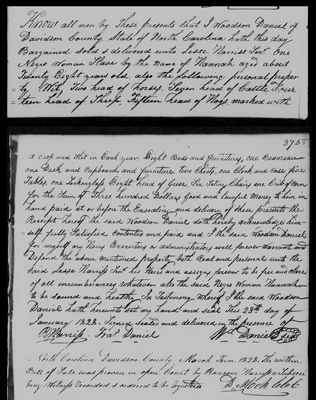 Know all men by These presents that I Woodson Daniel of
Davidson County State of North Carolina hath this day
Bargained sold & delivered unto Jesse Harriss Senr One
Negro Woman Slave by the name of Hannah aged about
Twenty Eight years old. also the following personal proper
ty Wit, Two head of horses, Seven head of Cattle Four
teen head of Sheep, Fifteen head of Hogs marked with
375
a crop and slit in Each year, Eight Beds and furniture, one Beaureau
one Desk and Cupboard and furniture two Chests, one Clock and Case five
Tables one Lookinglass Eight head of Geese Six Sitting Chairs one Crib of Corn
for the Sum of Three hundred Dollars good and lawful Money to him in
hand paid at or before the Ensealing and delivery of these presents the
Receipt hereof the said Woodson Daniel doth hereby acknowledge him
self fully Satisfied Contented and paid and I the said Woodson Daniel
for myself my Heirs Executors or administrators will forever Warrant and
Defend the above mentioned property both Real and personal unto the
said Jesse Harriss his Heirs and assigns forever to be free and clear
of all incumbrances Whatever also the said Negro Woman Hannah
to be sound and healthy In Testimony Whereof I the said Woodson
Daniel hath hereunto set my hand and seal This 23th day of
January 1828. Signed sealed and delivered in the presence of
Harriss, Daniel Daniel
North Carolina Davidson County March Term 1828. The within
Bill of Sale was proven in open Court by Ransom Harriss
being Recorded & ordered to be registered